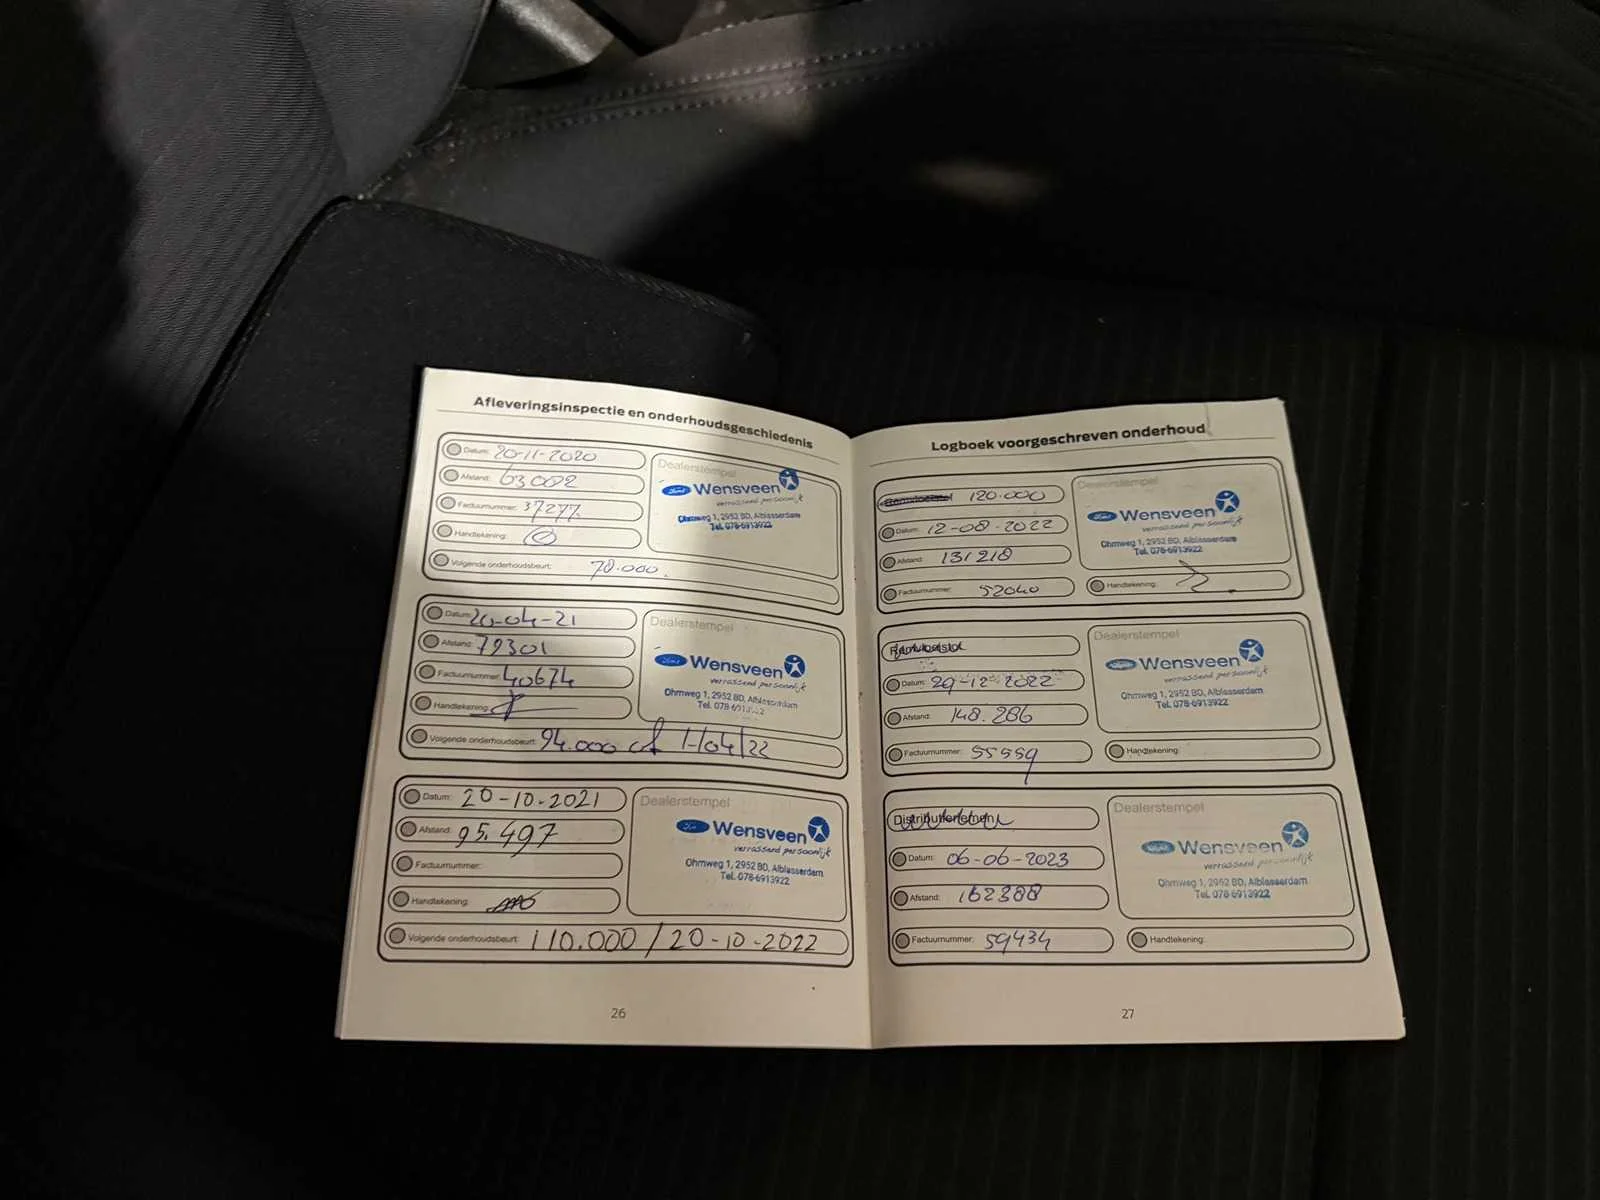 Afleveringsinspectie en onderhoudsgeschiedenis
Datum: 20-11-2020
Afstand: 63002
Factuurnummer: 37277
Handtekening:
Volgende onderhoudsbeurt: 78.000
Dealerstempel
Ford Wensveen
verrassend persoonlijk
Ohmweg 1, 2952 BD, Alblasserdam
Tel. 078-6913922
Datum: 20-04-21
Afstand: 79301
Factuurnummer: 40674
Handtekening:
Volgende onderhoudsbeurt: 94.000 of 1/04/22
Dealerstempel
Ford Wensveen
verrassend persoonlijk
Ohmweg 1, 2952 BD, Alblasserdam
Tel. 078-6913922
Datum: 20-10-2021
Afstand: 95.497
Factuurnummer:
Handtekening:
Volgende onderhoudsbeurt: 110.000 / 20-10-2022
Dealerstempel
Ford Wensveen
verrassend persoonlijk
Ohmweg 1, 2952 BD, Alblasserdam
Tel. 078-6913922
26
Logboek voorgeschreven onderhoud
Remvloeistof 120.000
Datum: 12-08-2022
Afstand: 131218
Factuurnummer: 52040
Dealerstempel
Ford Wensveen
verrassend persoonlijk
Ohmweg 1, 2952 BD, Alblasserdam
Tel. 078-6913922
Handtekening:
Remvloeistof
Datum: 29-12-2022
Afstand: 148.286
Factuurnummer: 55559
Dealerstempel
Ford Wensveen
verrassend persoonlijk
Ohmweg 1, 2952 BD, Alblasserdam
Tel. 078-6913922
Handtekening:
Distributieriemen
Datum: 06-06-2023
Afstand: 162388
Factuurnummer: 59434
Dealerstempel
Ford Wensveen
verrassend persoonlijk
Ohmweg 1, 2952 BD, Alblasserdam
Tel. 078-6913922
Handtekening:
27